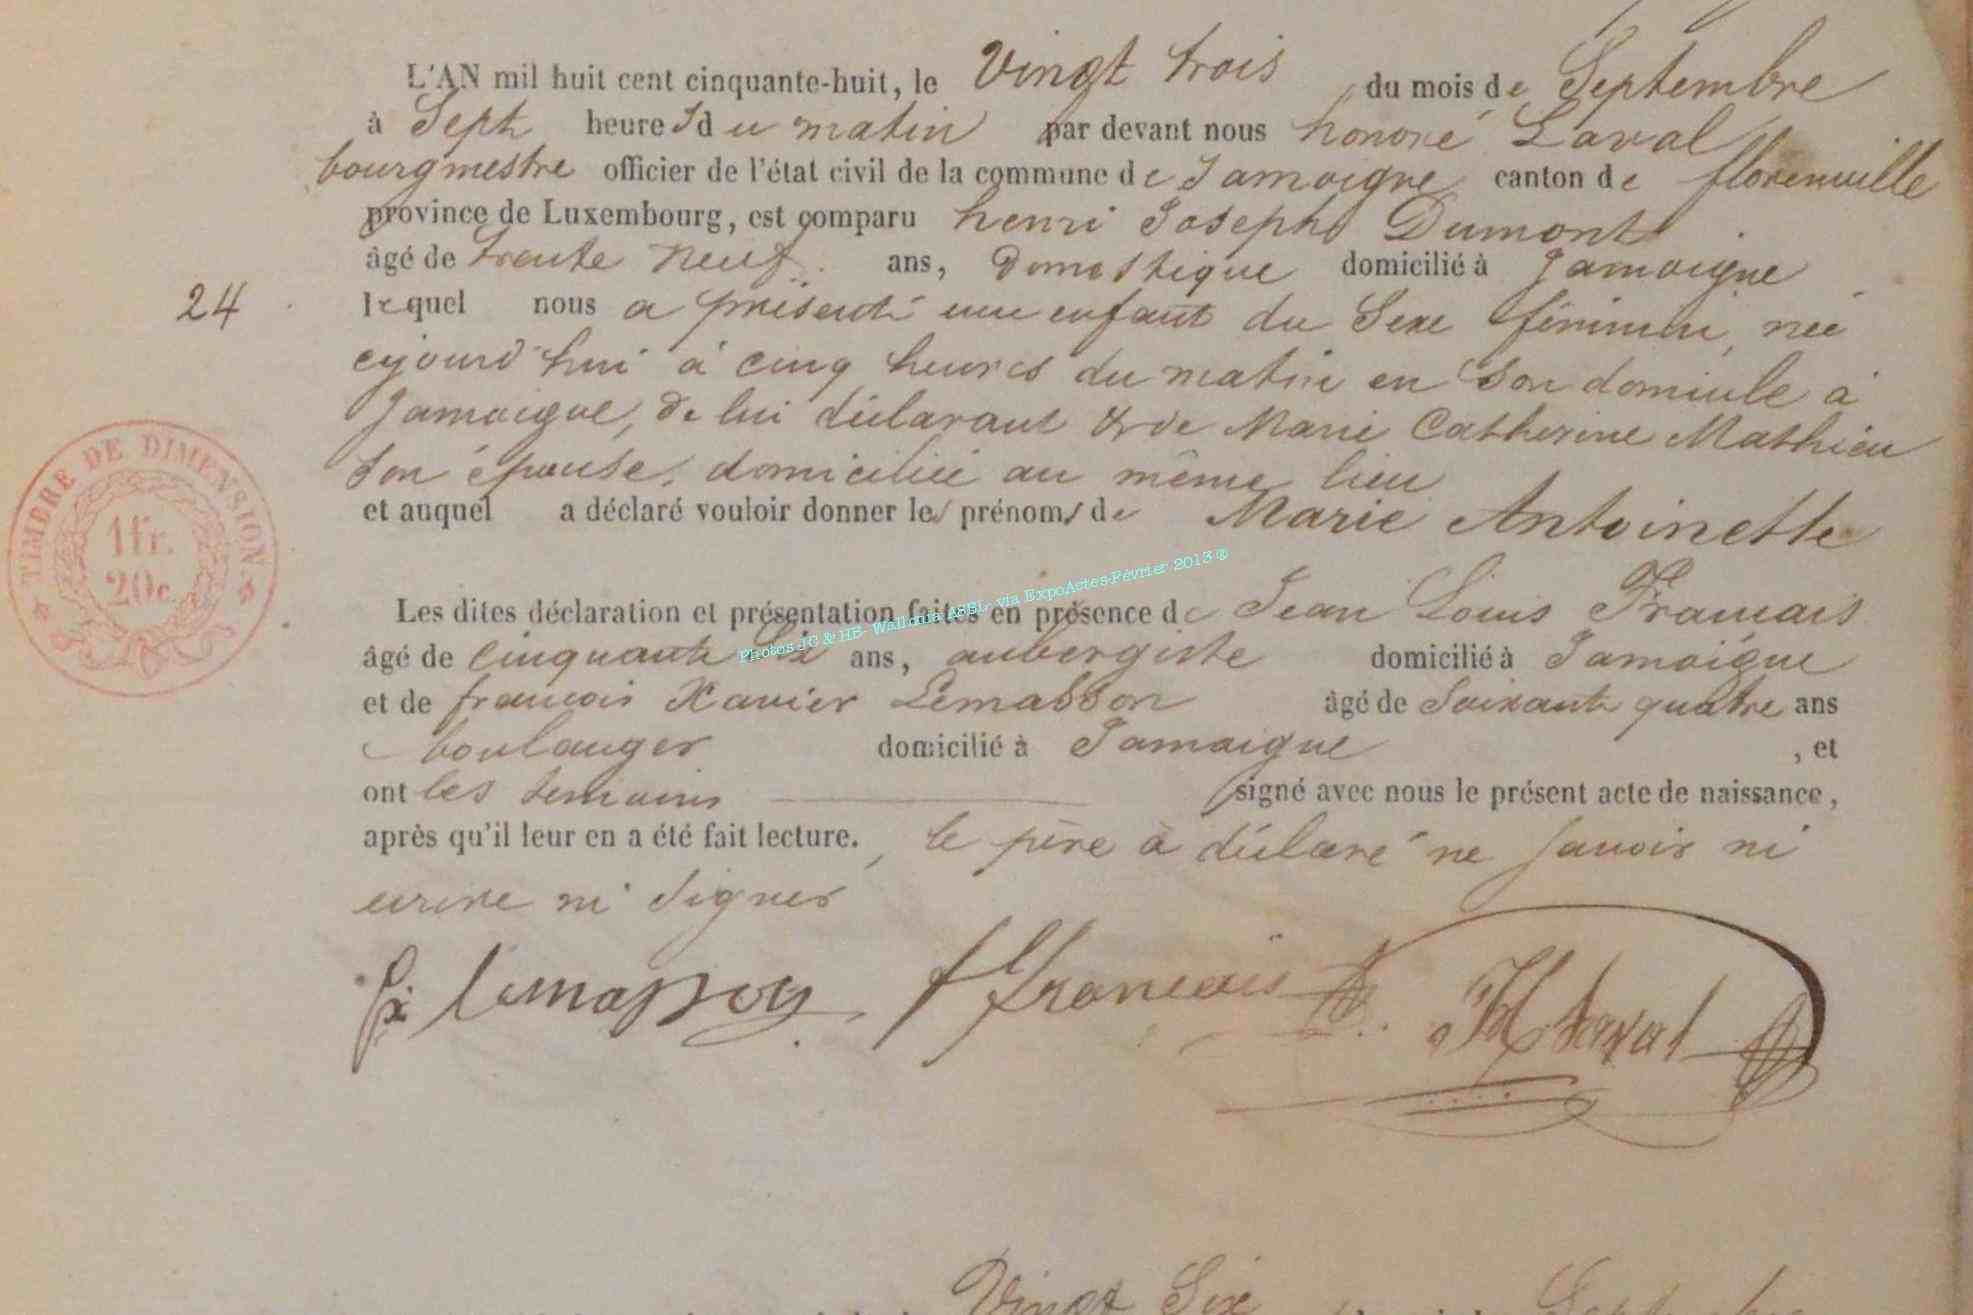 L'AN mil huit cent cinquante-huit, le Vingt trois du mois de Septembre
à Sept heures du matin par devant nous honoré Laval
bourgmestre officier de l'état civil de la commune de Jamoigne canton de florenville
province de Luxembourg, est comparu henri Joseph Dumont
âgé de trente neuf ans, Domestique domicilié à Jamoigne
24 lequel nous a présenté une enfant du Sexe féminin, née
cejourd'hui à cinq heures du matin en son domicile à
Jamoigne, de lui déclarant & de Marie Catherine Mathieu
son épouse, domiciliée au même lieu
et auquel a déclaré vouloir donner les prénoms de Marie Antoinette
TIMBRE DE DIMENSION
1 fr.
20c.
Photos JC & HB- Wallonia ASBL- via ExpoActes-Février 2013 ®
Les dites déclaration et présentation faites en présence de Jean Louis Francais
âgé de cinquante Six ans, aubergiste domicilié à Jamoigne
et de francois Xavier Lemasson âgé de Soixante quatre ans
boulanger domicilié à Jamoigne , et
ont les temoins signé avec nous le présent acte de naissance,
après qu'il leur en a été fait lecture. , le père à déclaré ne savoir ni
ecrire ni signer
lemasson. francais H Laval
Vingt Six Septembre